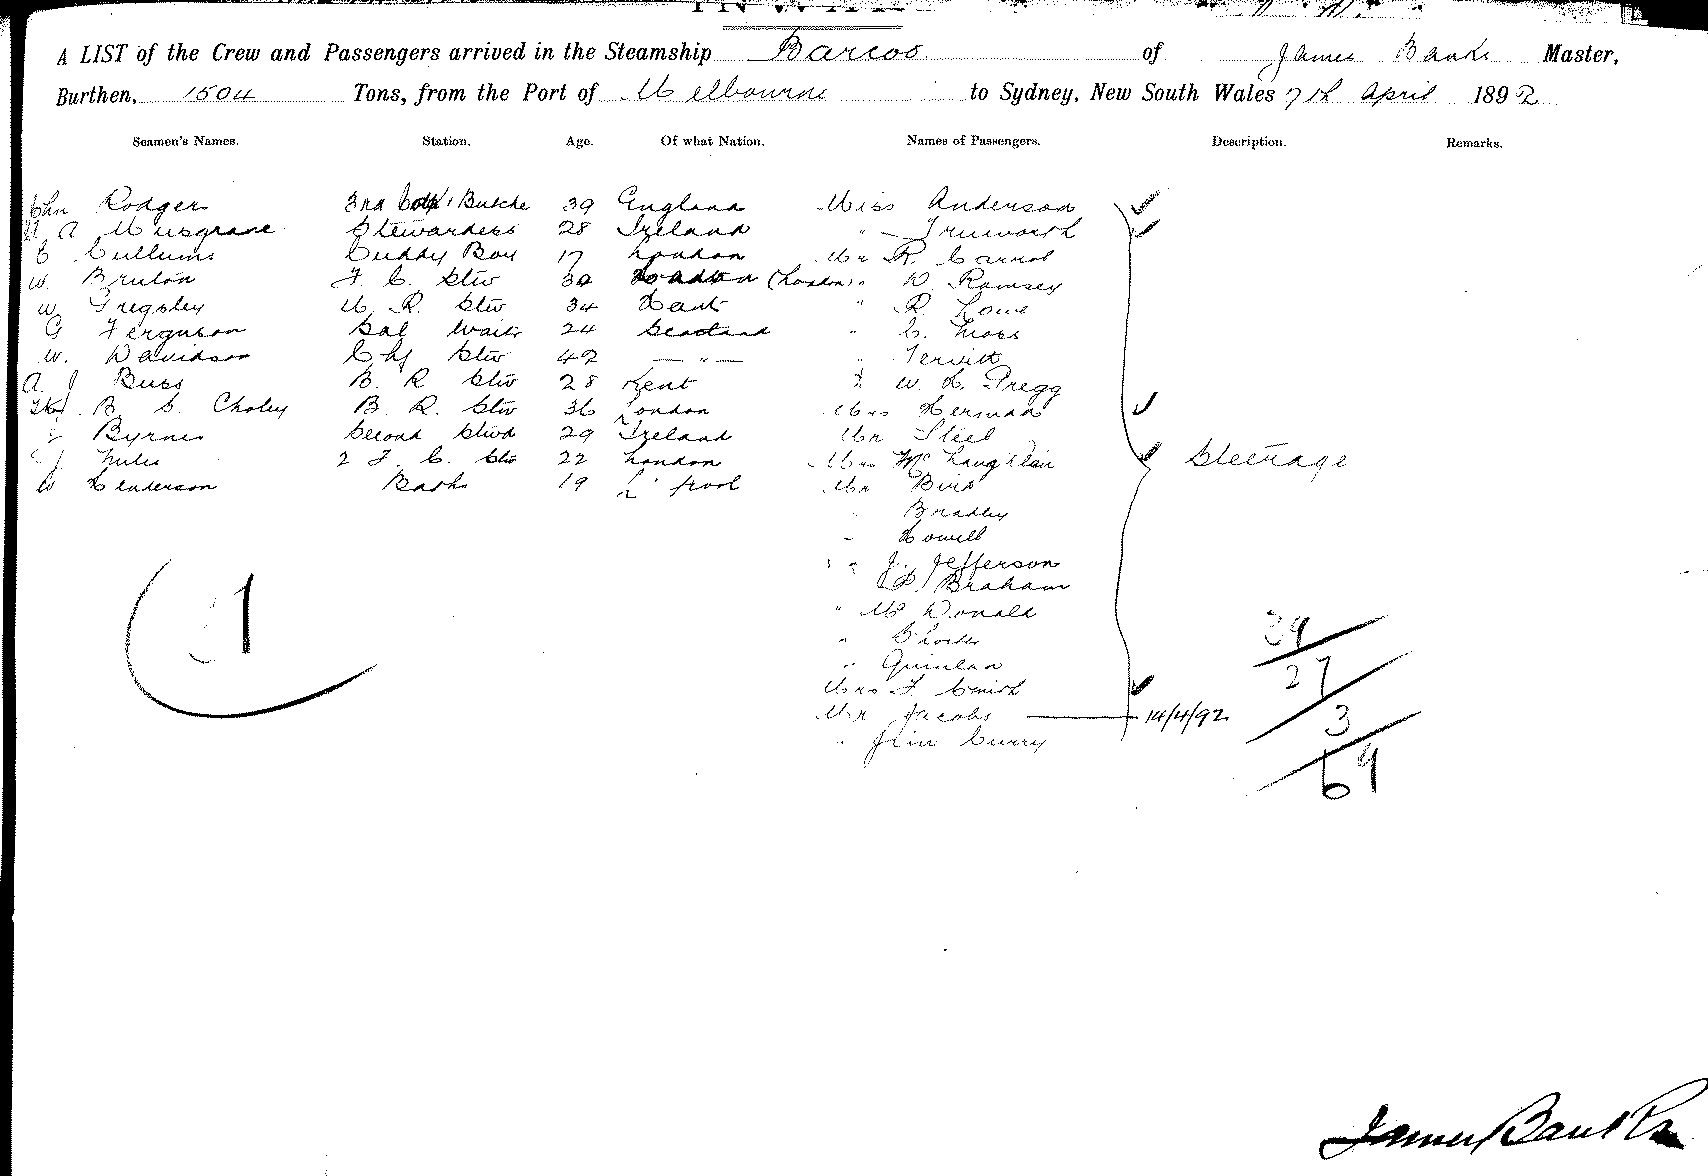 A LIST of the Crew and Passengers arrived in the Steamship Barcoo of James Banks Master,
Burthen, 1504 Tons, from the Port of Melbourne to Sydney, New South Wales 7th April 1892
Seamen's Names. Station. Age. Of what Nation. Names of Passengers. Description. Remarks.
John Rodgers 3rd Cook & Butche 39 England Miss Anderson
A Musgrave Stewardess 28 Ireland " Trueworth
C Cullums Cuddy Boy 17 London Mr R Carrol
W. Bruton F. C. Stw 30 London (London) " D Ramsey
W Gregsley M. R. Stw 34 Kent " R. Lowe
G Ferguson Sal Waitr 24 Scotland " C. Moss
W. Davidson Chf Stw 42 — " — " Tervitt
A. J Buss B. R Stw 28 Kent " W. H. Gregg
B. S. Choley B. R. Stw 36 London Mrs Herman
J Byrnes Second Stwd 29 Ireland Mr Steel
J Miles 2 F. C. Stw 22 London Mrs McLaughlan Steerage
W Henderson Baths 19 L'pool Mr Bird
" Bradley
" Howell
" J. Jefferson
P. Braham
" McDonald
"
" Quinlan
Mrs F. Smith
Mr Jacobs 14/4/92
" Jim Curry
1
39
27
3
69
James Banks